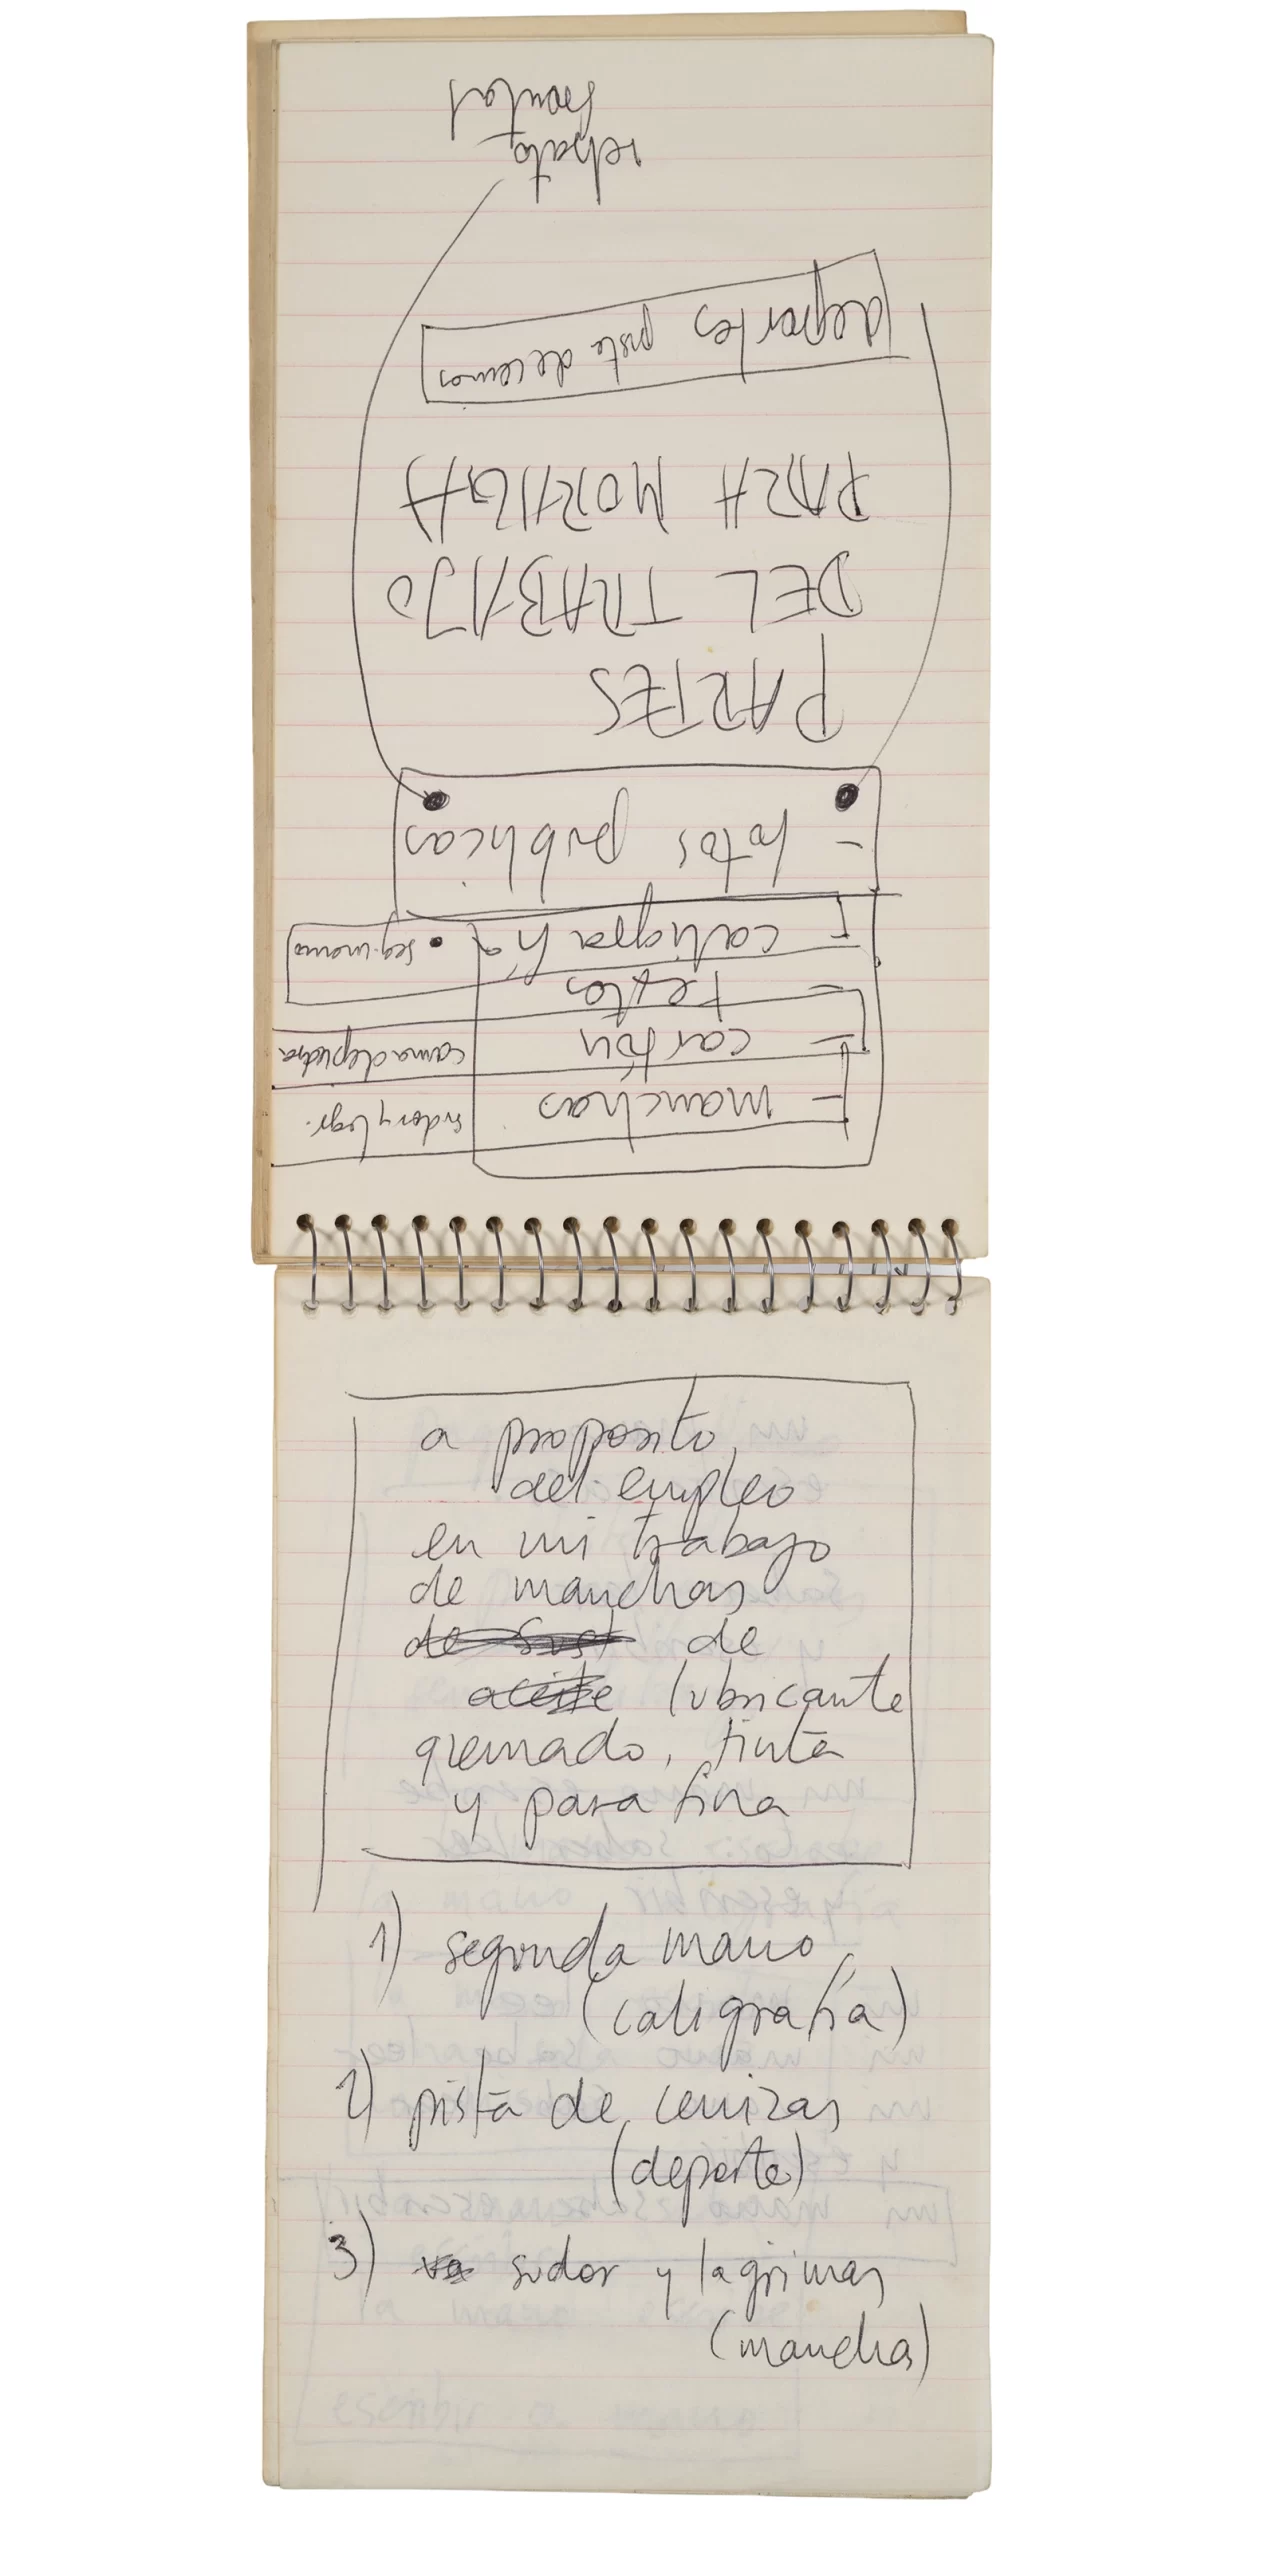 - manchas sudor y lagr.
- cartón cama de piedra
- textos
- caligrafía • seg. mano
- fotos públicas
PARTES
DEL TRABAJO
PARA MORAIGA
deportes pista de cenizas
retrato
frontal
a proposito
del empleo
en mi trabajo
de manchas
de sust de
aceite lubricante
quemado, tinta
y parafina
1) segunda mano
(caligrafía)
2) pista de cenizas
(deporte)
3) sudor y lagrimas
(mancha)